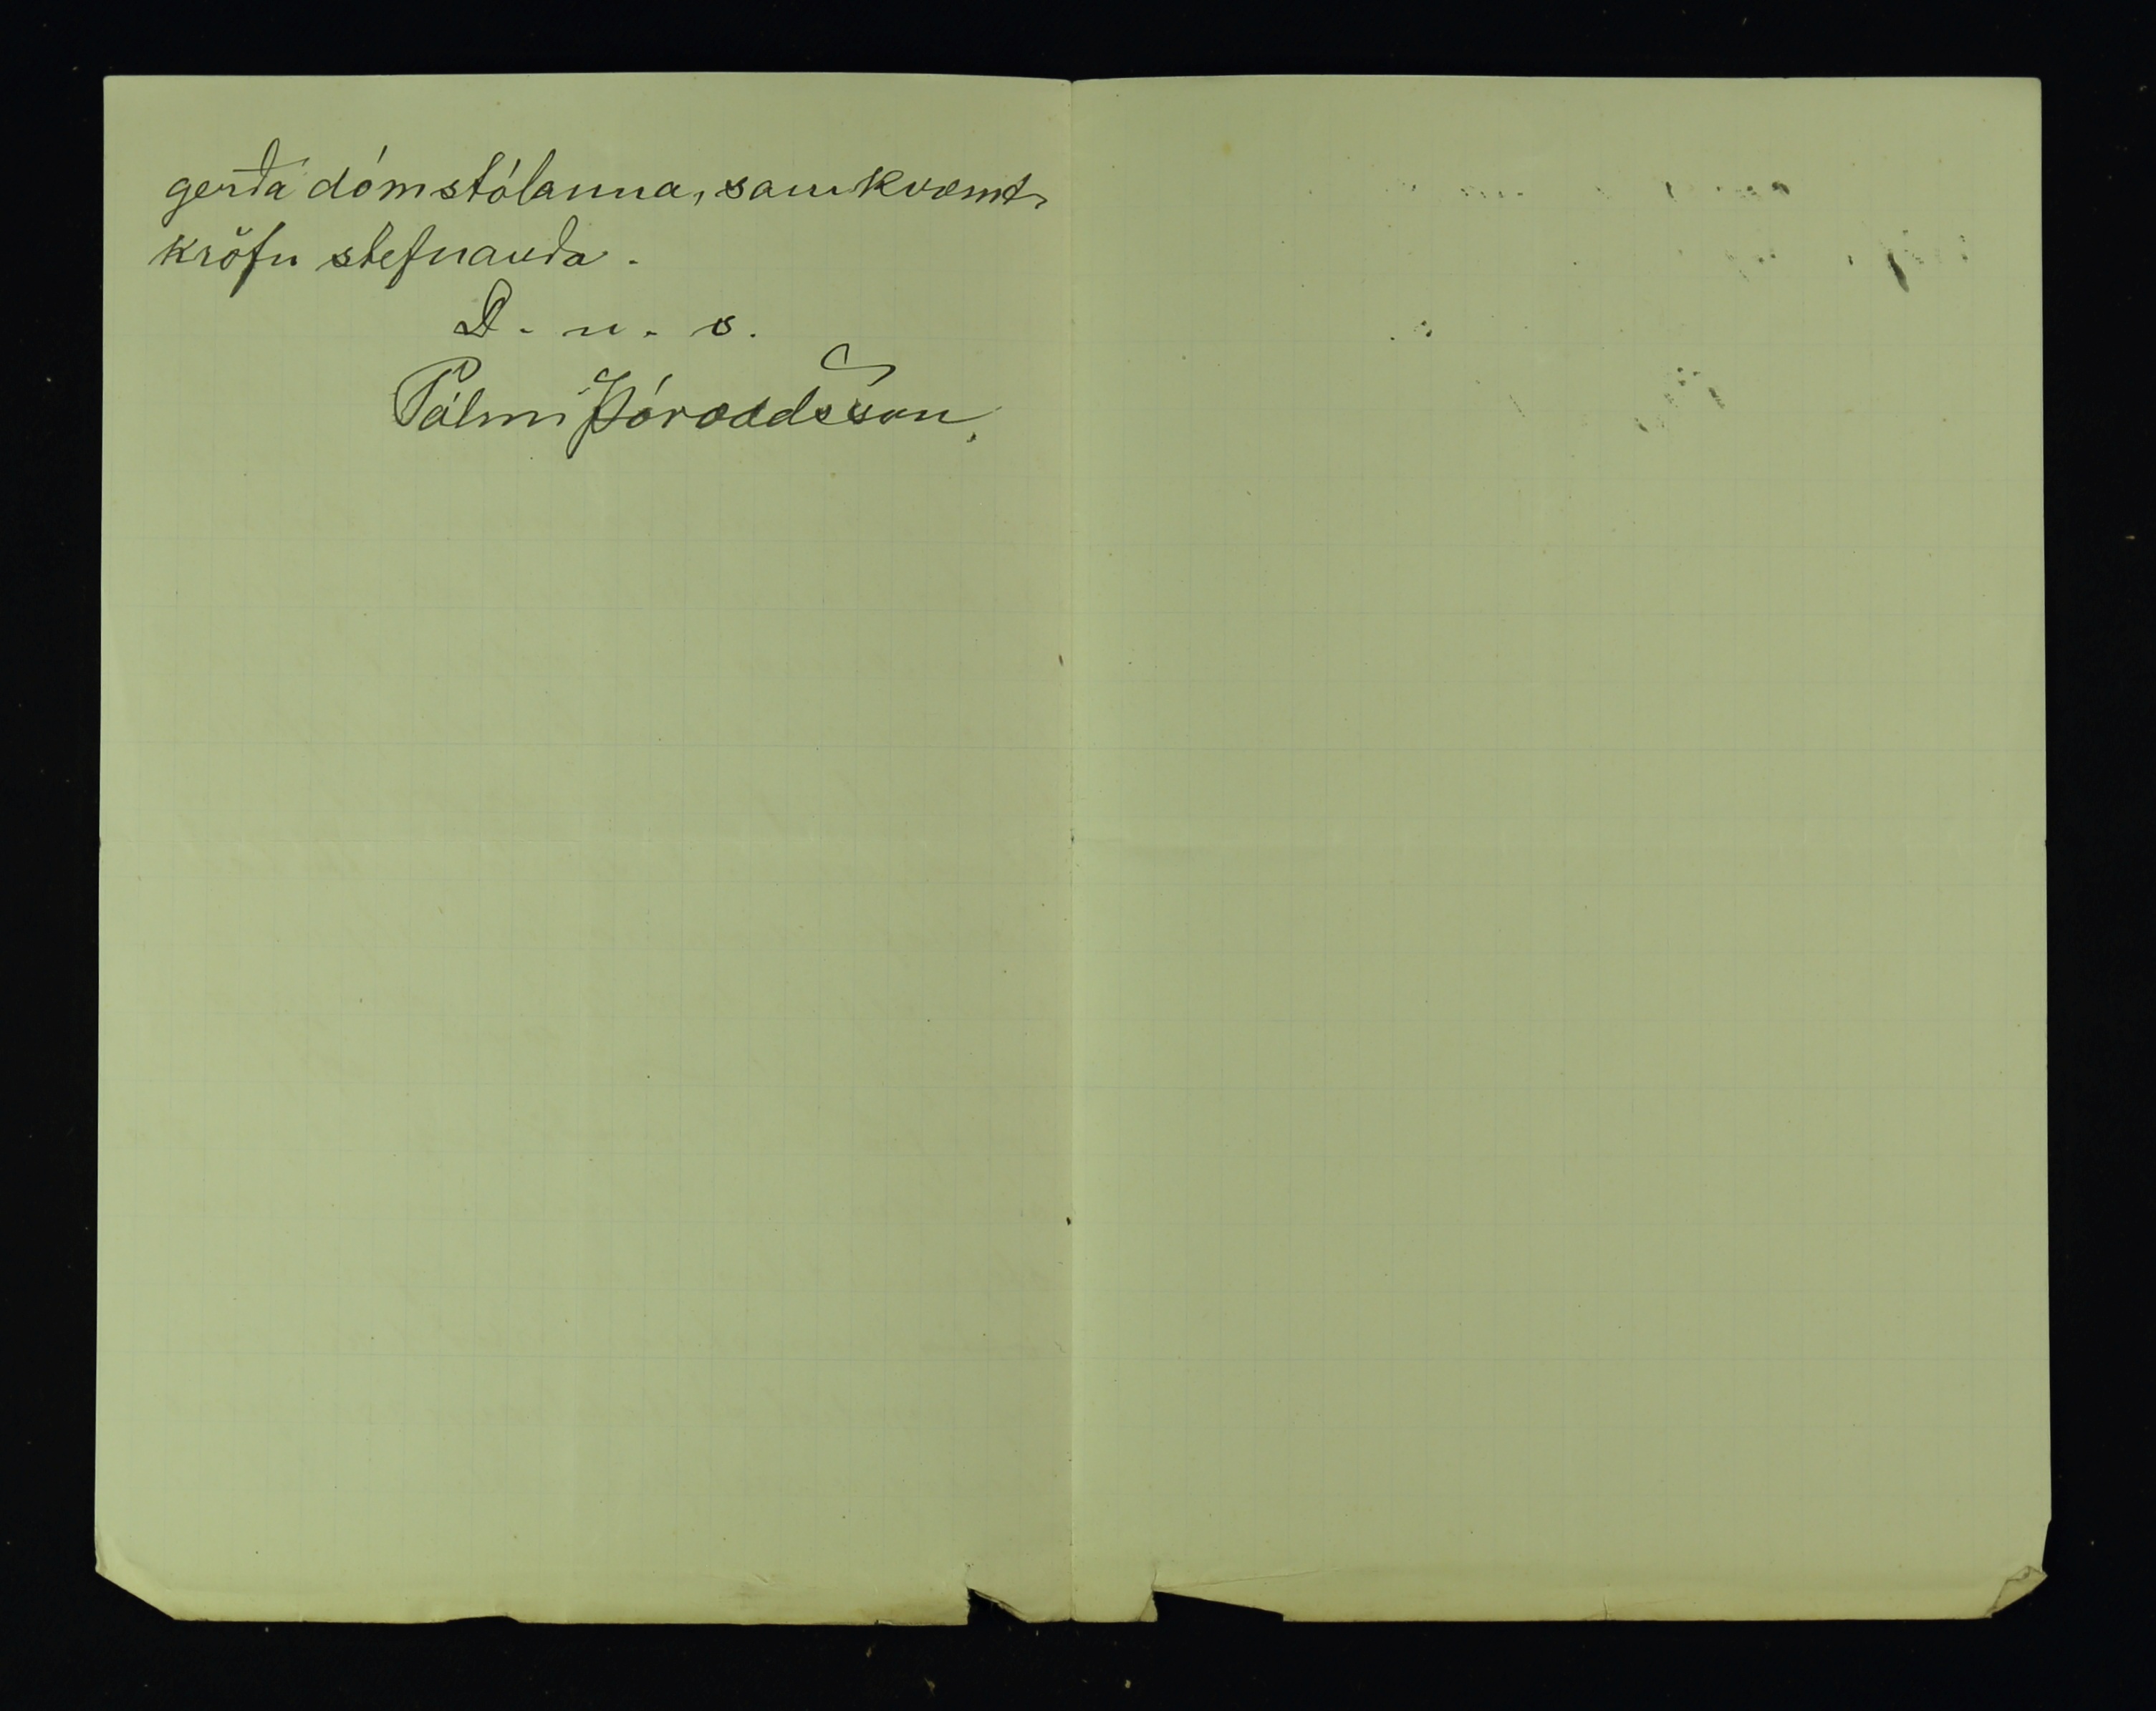 gerða dómstólanna, samkvæmt
kröfu stefnanda.
D. u. s.
Pálmi Þóroddsson.